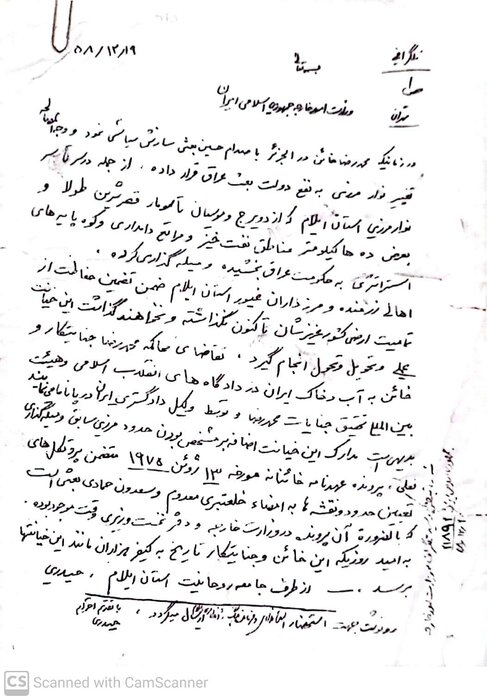 ۵۸/۱۲/۱۹
تلگرافی
بسمه تعالی
تهران
وزارت امور خارجه جمهوری اسلامی ایران
در زمانیکه محمدرضا خائن در الجزائر با صدام حسین بعثی سازش سیاسی نمود و وجه المصالحه
تغییر نوار مرزی به نفع دولت بعث عراق قرار داده ، از جمله در سرتاسر
نوار مرزی استان ایلام که از دویرج و موسیان تا سومار قصرشیرین طولا و
بعرض ده ها کیلومتر مناطق نفت خیز و مراتع دامداری و کوه پایه های
استراتژی به حکومت عراق بخشیده و میله گذاری کرده .
اهالی رزمنده و مرزداران غیور استان ایلام ضمن تضمین حفاظت از
تمامیت ارضی کشور عزیزشان تاکنون نگذاشته و نخواهند گذاشت این خیانت
عملی و تحویل و تحول انجام گیرد ، تقاضای محاکمه محمدرضا جنایتکار و
خائن به آب و خاک ایران در دادگاه های انقلاب اسلامی و هیئت
بین المللی تحقیق جنایات محمدرضا و توسط وکیل دادگستری ایران در پاناما می نمایند
بدیهی است مدارک این خیانت اضافه بر مشخص بودن حدود مرزی سابق و میله گذاری
فعلی ، پرونده عهدنامه خائنانه مورخه ۱۳ ژوئن ۱۹۷۵ متضمن پروتکل های
تعیین حدود و نقشه ها به امضاء خلعتبری معدوم و سعدون حمادی بعثی است
که بالضروره آن پرونده در وزارت خارجه و دفتر نخست وزیری وقت موجود بوده .
به امید روزیکه این خائن و جنایتکار تاریخ به کیفر هزاران مانند این خیانتها
برسد . از طرف جامعه روحانیت استان ایلام ، حیدری
رونوشت جهت استحضار ارسال میگردد ، با تقدیم احترام
حیدری
۱۱۸۹۲
CS Scanned with CamScanner